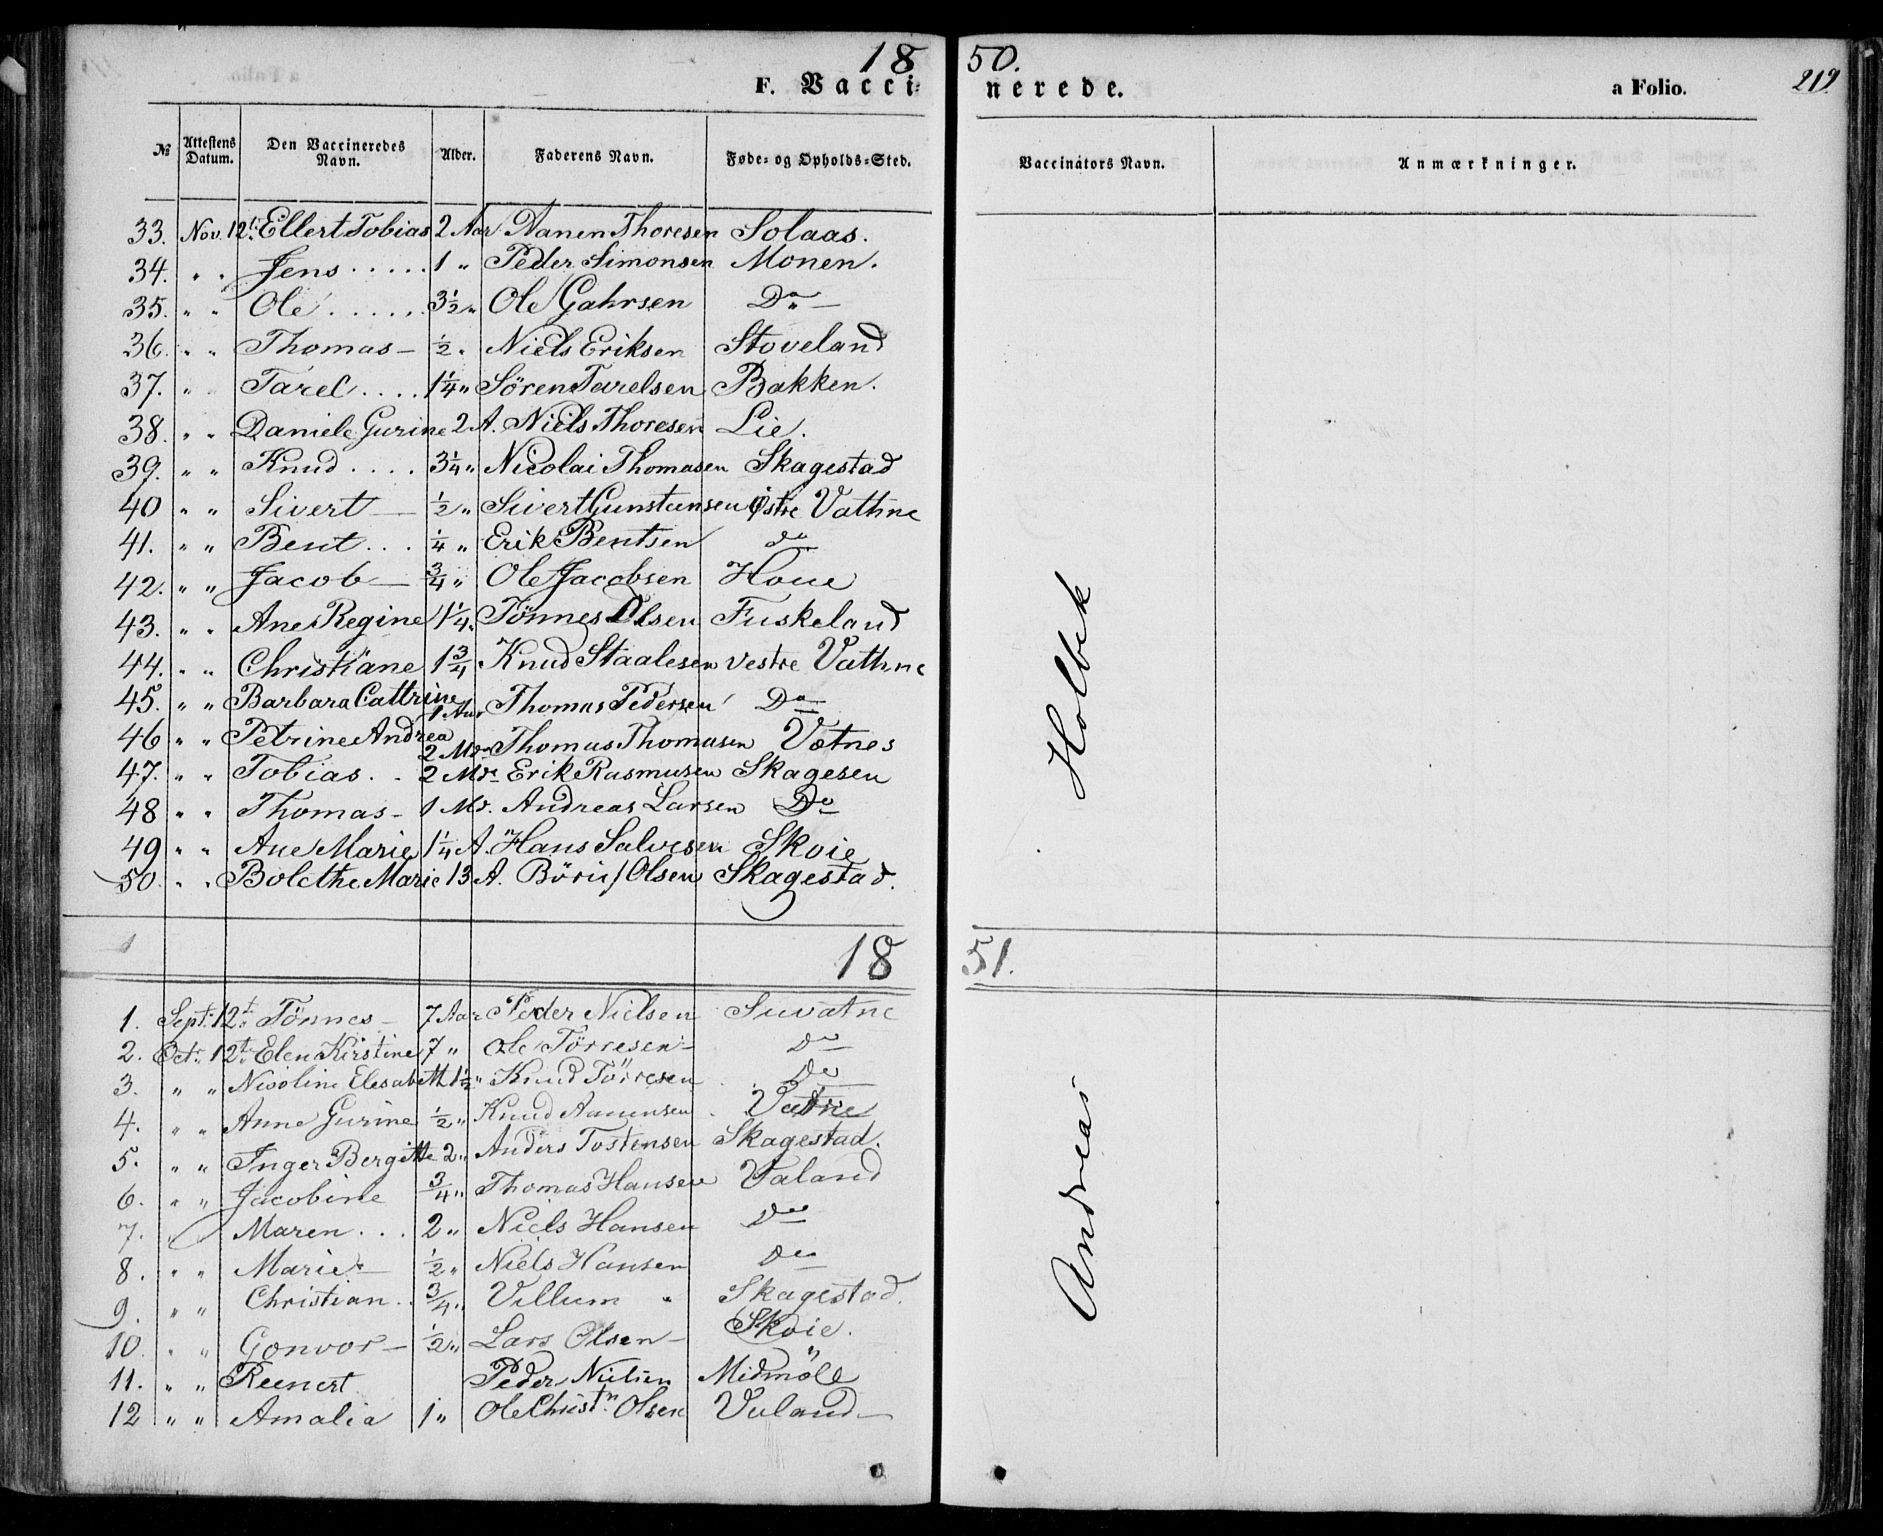 1850.
F. Vaccinerede.
a Folio. 219.
№ Attestens Datum. Den Vaccineredes Navn. Alder. Faderens Navn. Føde- og Opholds-Sted. Vaccinators Navn. Anmærkninger.
33. Nov. 12t. Ellert Tobias 2 Aar Aanen Thoresen Solaas.
34. " " Jens ..... 1 " Peder Simonsen Monen.
35. " " Ole ...... 3½ " Ole Gahrsen Do —
36. " " Thomas — ½ " Niels Eriksen Stoveland
37. " " Tarel .... 1¼ " Sören Tarelsen Bakken.
38. " " Daniele Gurine 2 A. Niels Thoresen Lie.
39. " " Knud .... 3¼ " Nicolai Thomasen Skagestad
40 " " Sivert — ½ " Sivert Gunstensen Östre Vathne
41. " " Bent ... ¼ " Erik Bentsen do
42. " " Jacob — ¾ " Ole Jacobsen Houe
43. " " Ane Regine 1¼ " Tönnes Olsen Fuskeland
44. " " Christiane 1¾ " Knud Staalesen vestre Vathne
45. " " Barbara Cattrine 1 Aar Thomas Pedersen Do
46 " " Petrine Andrea 2 Mdr Thomas Thomasen Vatnes
47. " " Tobias .. 2 Mdr Erik Rasmusen Skagesen
48 " " Thomas - 1 Md. Andreas Larsen Do
49 " " Ane Marie 1¼ A. Hans Salvesen Skoie
50. " " Bolethe Marie 13 A. Börii Olsen Skagestad.
Andreas Holbek
1851.
1. Sept. 12t. Tönnes — 7 Aar Peder Nielsen Suvatne
2. Oct. 12t. Elen Kirstine 7 " Ole Törresen — Do
3. " " Nicoline Elesabeth 1½ " Knud Törresen Do
4. " " Anne Gurine ½ " Knud Aanensen Vatne
5. " " Inger Bergitte 2 " Anders Tostensen Skagestad.
6. " " Jacobine ¾ " Thomas Hansen Valand
7. " Maren ... 2 " Niels Hansen Do
8. " " Marie — ½ " Niels Hansen Do
9. " " Christian .. ¾ " Villum " Skagestad.
10. " " Gonvor — ½ " Lars Olsen — Skoie.
11. " " Reenert Peder Nielsen Midmöle
12 " " Amalia 1 " Ole Christn. Olsen Valand —